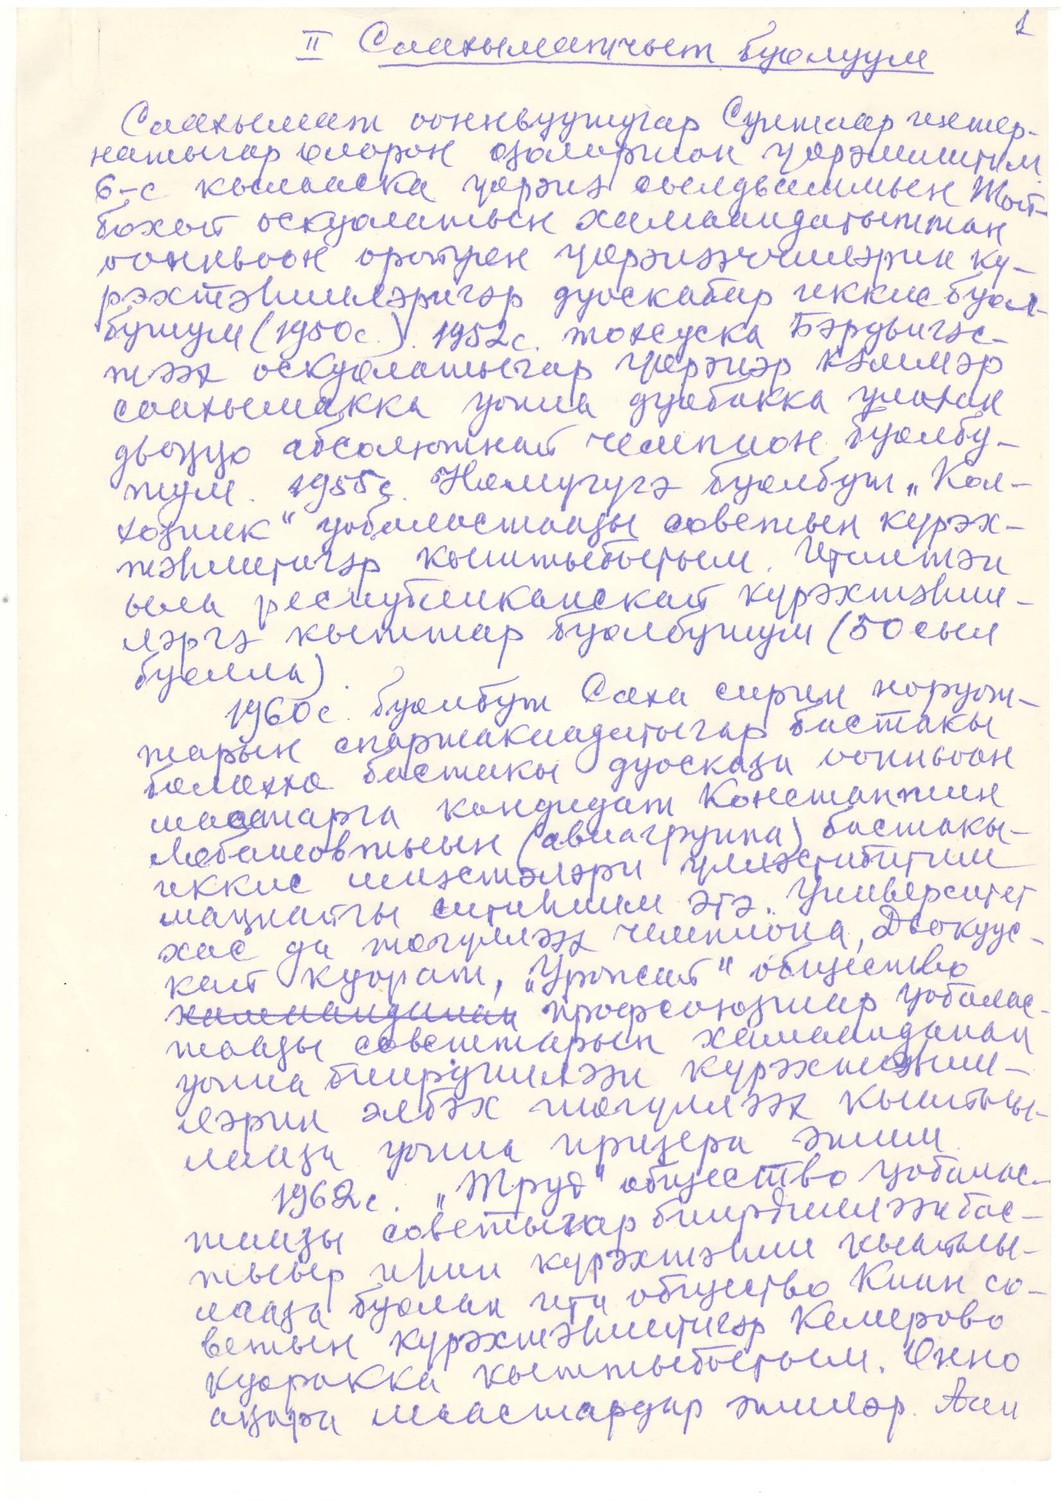 1
II Саахыматчыт буолуум
Саахымат оонньуутугар Сунтаар интер-
натыгар олорон оҕолортон үөрэммитим.
6-с кылааска үөрэнэ сылдьаммын Тойбохой
оскуолатын хамаандатыттан
оонньоон оройуон үөрэнээччилэрин кү-
рэхтэһиилэригэр дуоскабар иккис буол-
бутум (1950с.). 1952с. тохсуска Бэрдьигэс-
тээх оскуолатыгар үөрэнэр кэммэр
саахымакка уонна дуобакка улахан
дьоҥҥо абсолютнай чемпион буолбу-
тум. 1955с. Намҥа буолбут „Кол-
хозник“ уобаластааҕы советын күрэх-
тэһиитигэр кыттыбытым. Итинтэн
ыла республиканскай күрэхтэһии-
лэргэ кыттар буолбутум (50 сыл
буолла).
1960с. буолбут Саха сирин норуот-
тарын спартакиадатыгар бастакы
болоххо бастакы дуоскаҕа оонньоон
маастарга кандидат Константин
(авиагруппа) бастакы-
иккис миэстэлэри үллэстибитим
маҥнайгы ситиһиим этэ. Университет
хас да төгүллээх чемпиона, Дьокуус-
кай куорат, „Урожай“ общество
хамаандатын профсоюзтар уобалас-
тааҕы советтарын хамаандатын
уонна биирдиилээн күрэхтэһии-
лэрин элбэх төгүллээх кыайыы-
лааҕа уонна призера этим.
1962с. „Труд“ общество уобалас-
тааҕы советыгар биирдиилээн бас-
тыыр иһин күрэхтэһии кыайыы-
лааҕа буолан ити общество Киин со-
ветын күрэхтэһиитигэр Кемерово
куоракка кыттыбытым. Онно
аҥара маастардар этилэр.